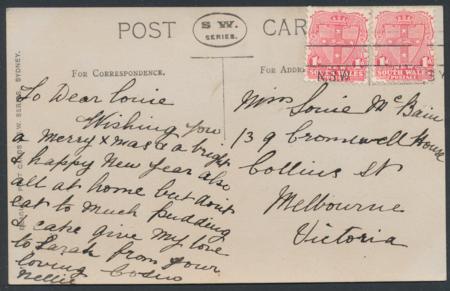 POST CARD
S W.
SERIES.
FOR CORRESPONDENCE.
To Dear Louie
Wishing you
a Merry Xmas & a bright
& happy New Year also
all at home but don't
eat to much pudding
& cake give my love
to Sarah from your
loving
Nellie
Miss Louie McBain
139 Cromwell House
Collins St
Melbourne
Victoria
1d 1d
SOUTH WALES
POSTAGE
1d 1d
SOUTH WALES
POST CARDS S.W. SERIES, SYDNEY.